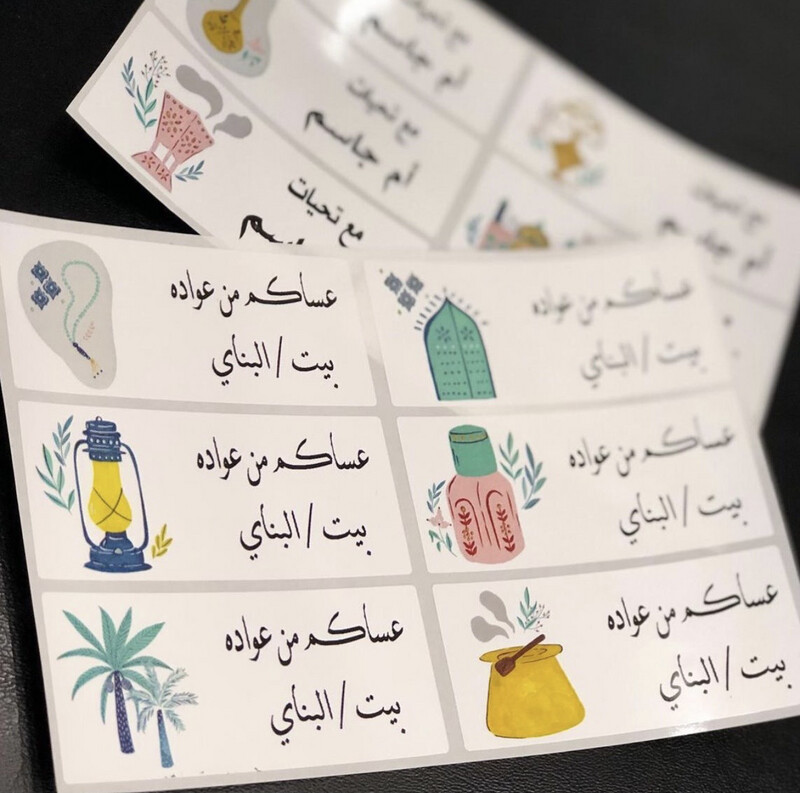 مع تحيات
أم جاسم
مع تحيات
أم جاسم
مع تحيات
أم جاسم
مع تحيات
عساكم من عواده
بيت / البناي
عساكم من عواده
بيت / البناي
عساكم من عواده
بيت / البناي
عساكم من عواده
بيت / البناي
عساكم من عواده
بيت / البناي
عساكم من عواده
بيت / البناي